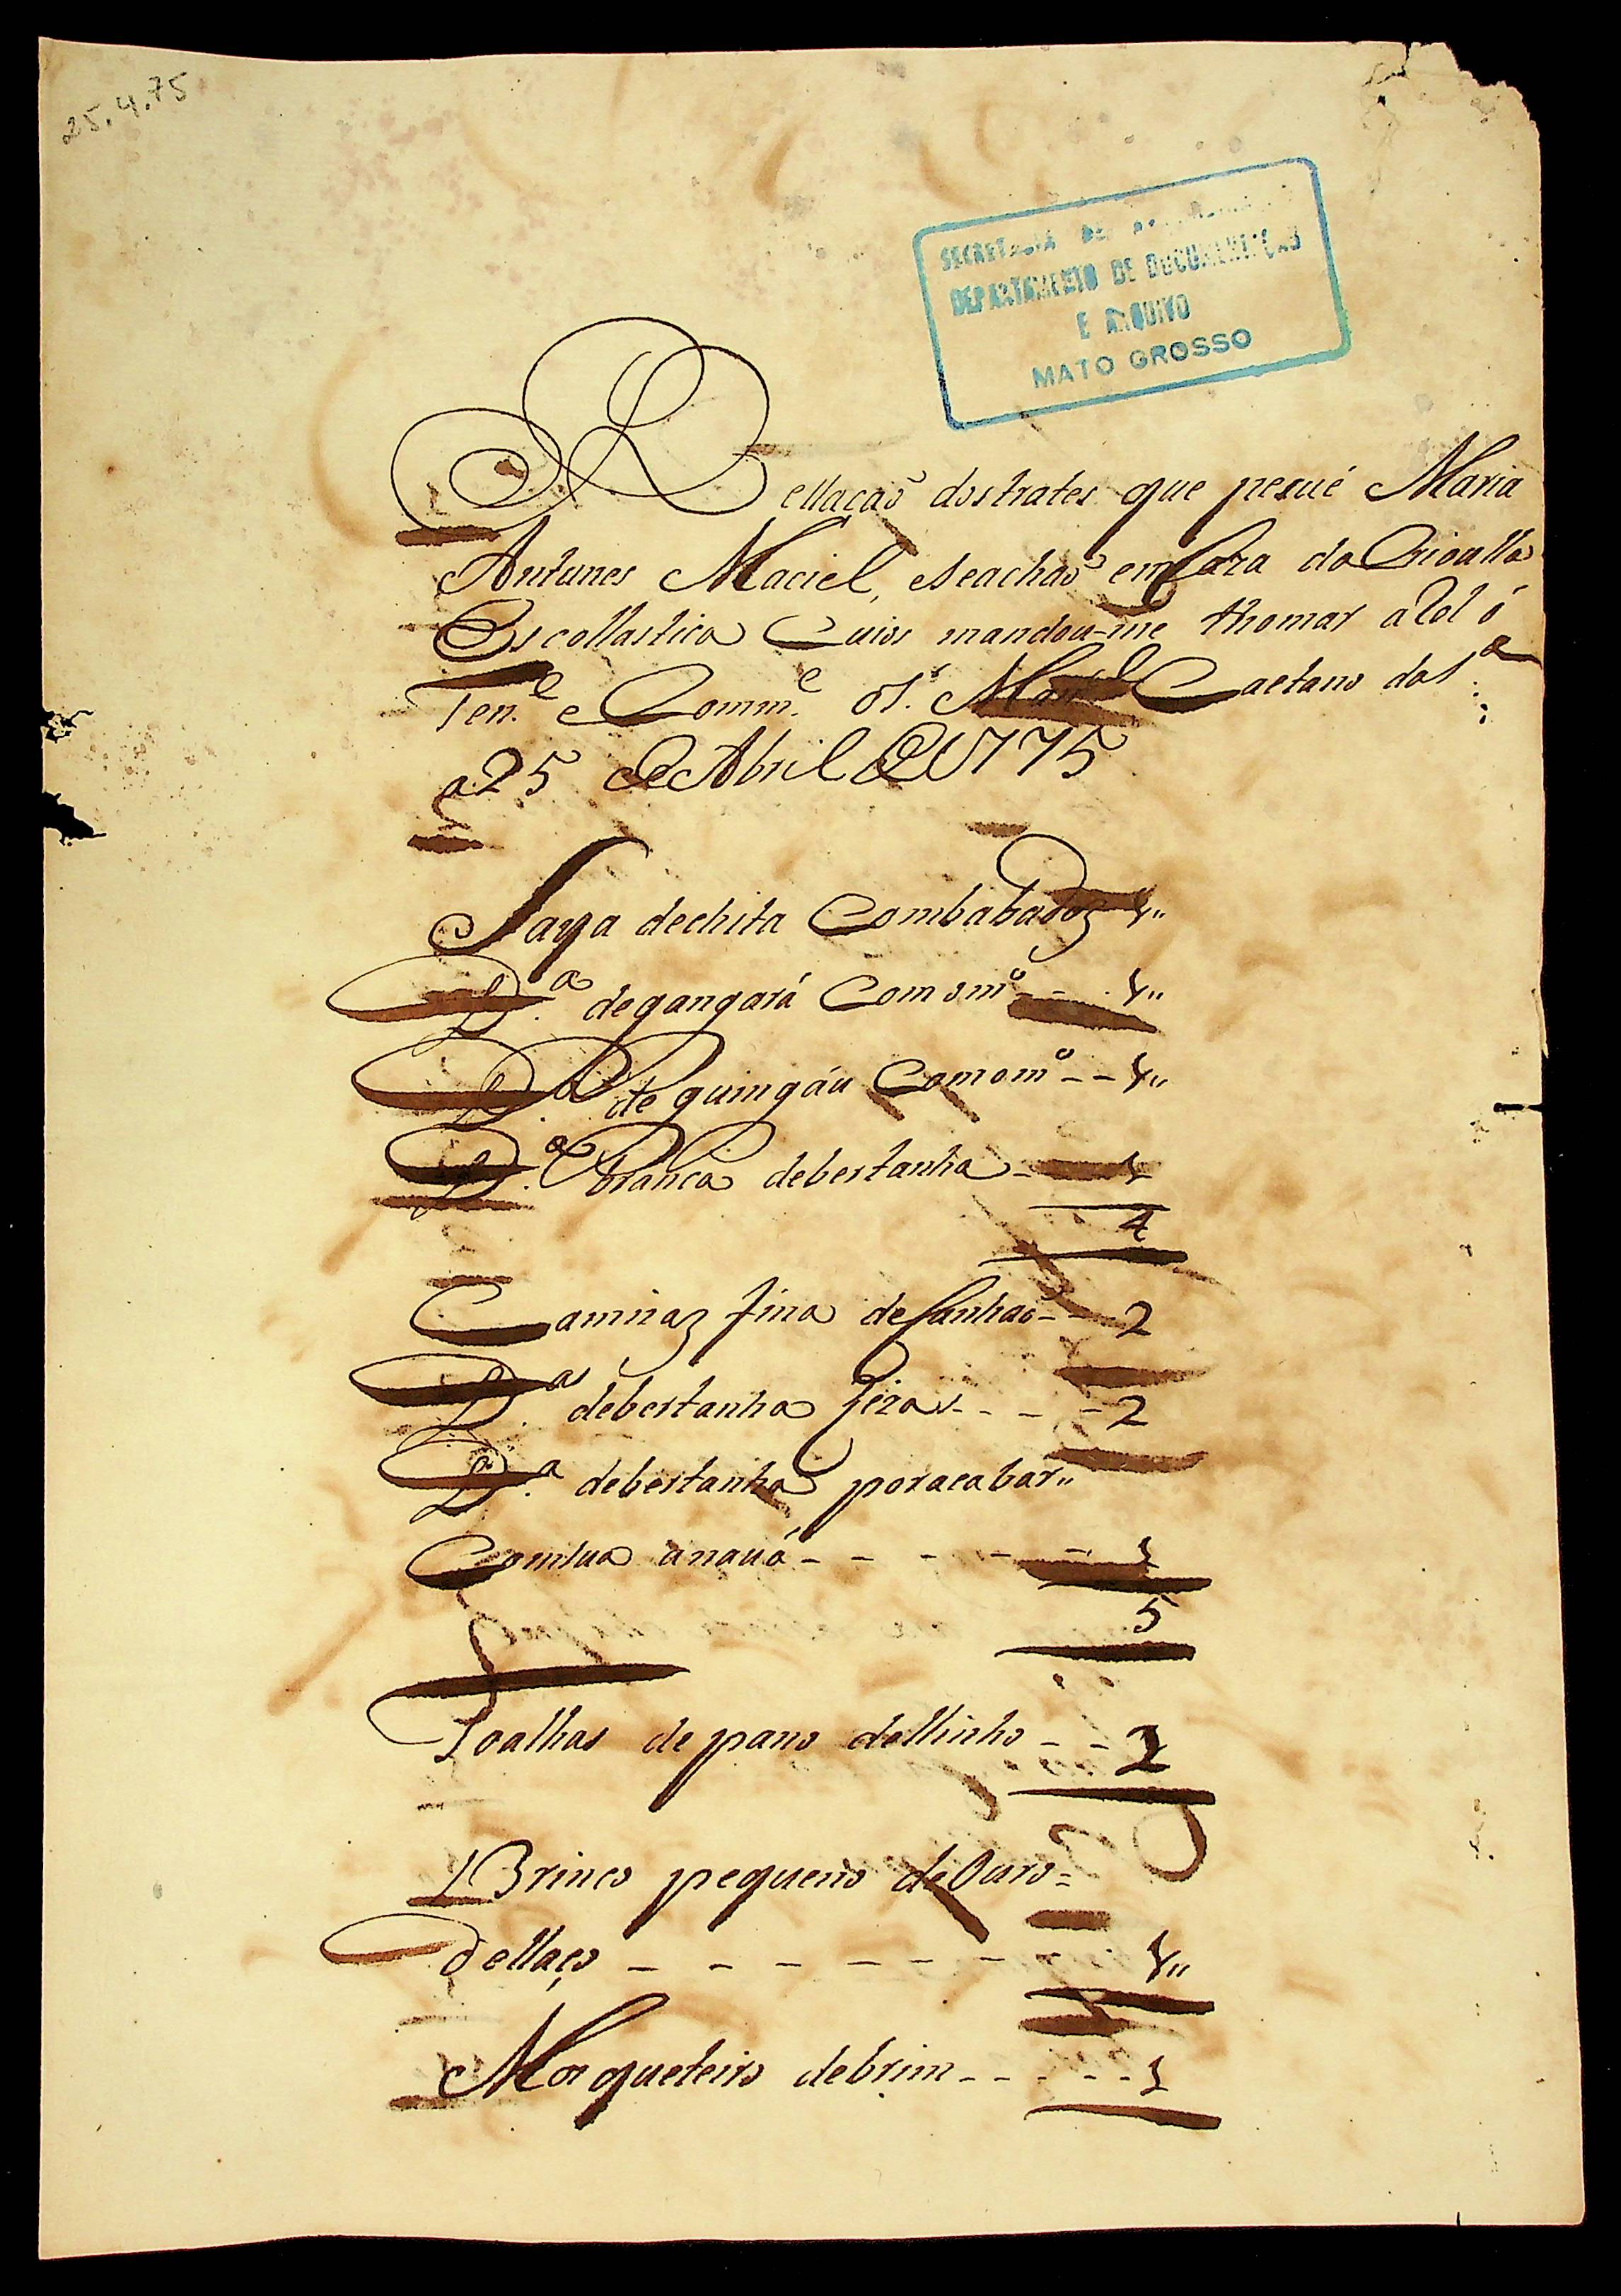 25.4.75
SECRETARIA DE
DEPARTAMENTO DE DOCUMENTAÇÃO
E ARQUIVO
MATO GROSSO
Rellaçaõ dostrates que pesué Maria
Antunes Maciel, eseachaõ emcaza da Crioulla
Escollastica Cuios mandou-me thomar aRol ó
Ten.e e Comm.e o S.r Man.el Caetano da S.a
a 25 de Abril de 1775
Saya dechita Combabados 1,,
D.a degangará Com om.o - - 1,,
D.a de guingáu Com om.o - - 1,,
D.a branca debertanha - 1
4
Camizaz fina de - - 2
D.as debertanha Lizas - - - - 2
D.a debertanha poracabar,,
Comsua anauá - - - - - 1
5
Toalhas de pano dellinho - - 2
Brinco pequeno de Ouro =
dellaço - - - - - - - 1,,
Mosqueteiro debrim - - - - - 1